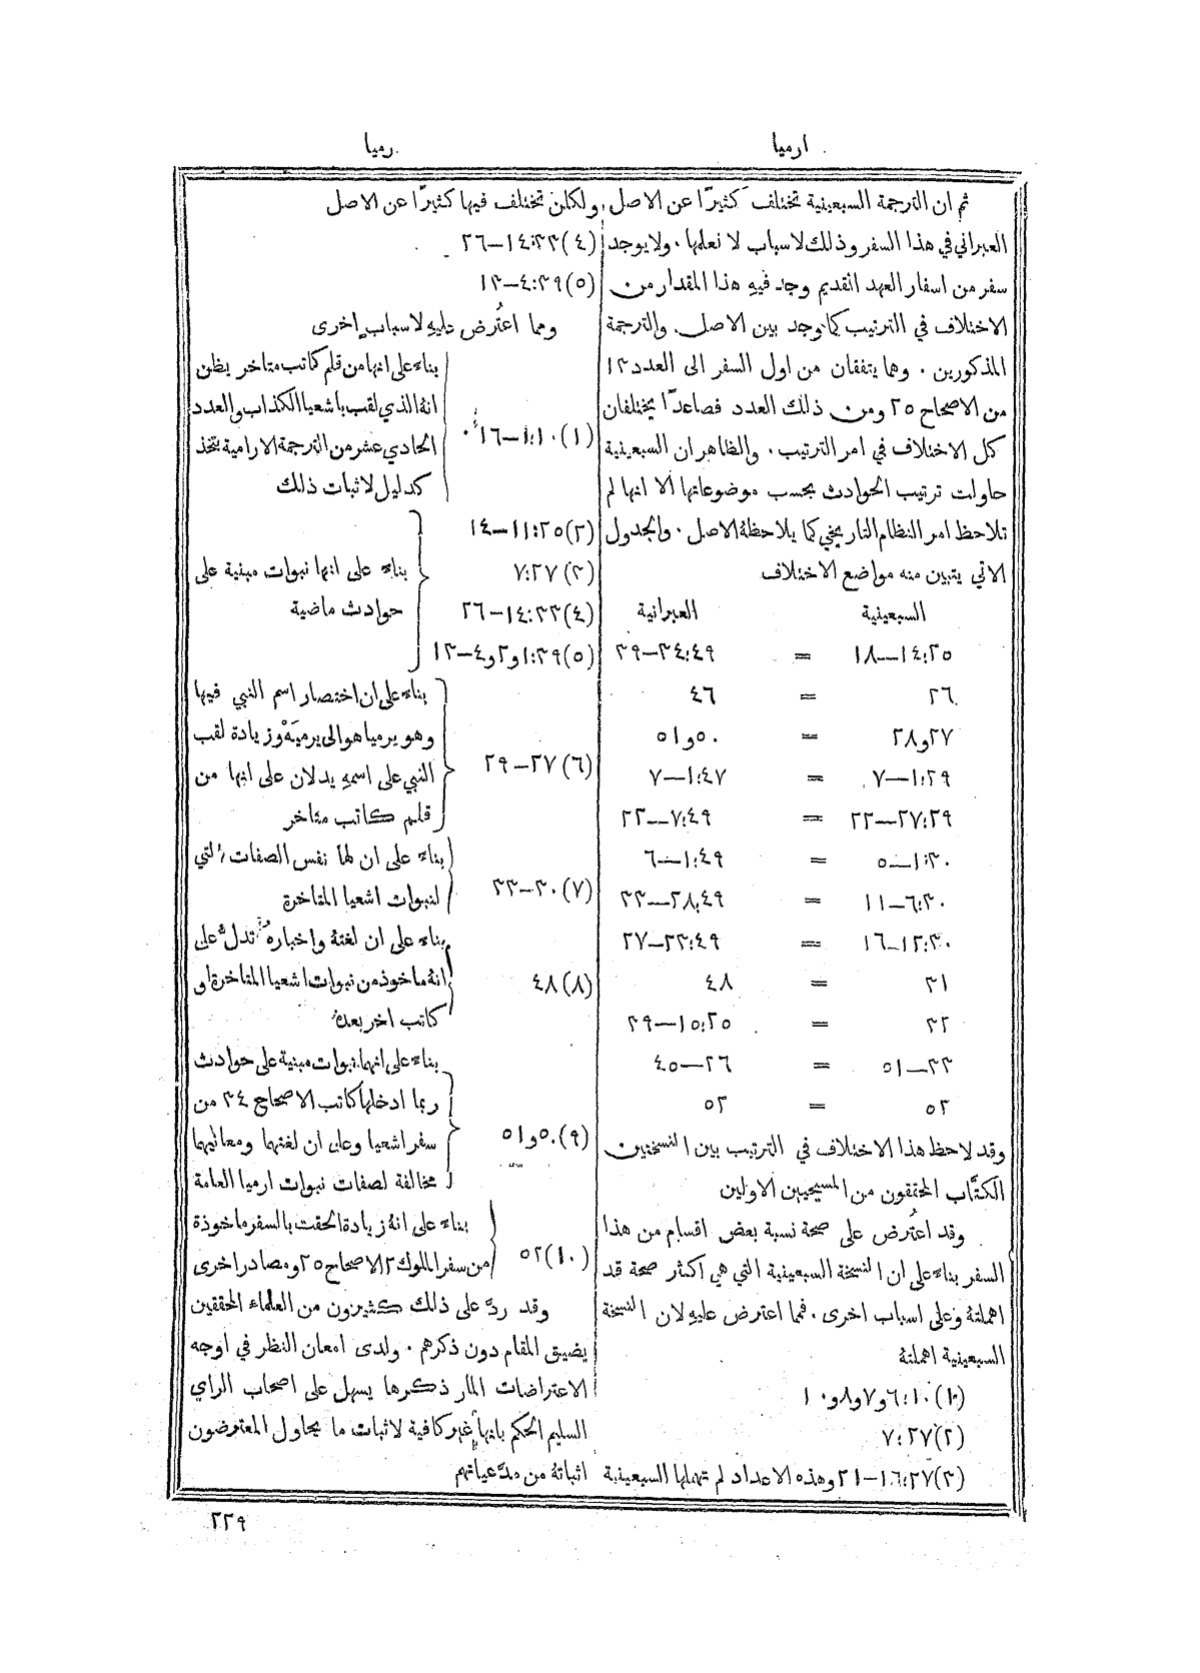 ارميا
رميا
ثم ان الترجمة السبعينية تختلف كثيرًا عن الاصل
العبراني في هذا السفر وذلك لاسباب لا نعلمها. ولا يوجد
سفر من اسفار العهد القديم وجد فيهِ هذا المقدار من
الاختلاف في الترتيب كما وجد بين الاصل والترجمة
المذكورين. وهما يتفقان من اول السفر الى العدد ١٣
من الاصحاح ٢٥ ومن ذلك العدد فصاعدًا يختلفان
كل الاختلاف في امر الترتيب. والظاهر ان السبعينية
حاولت ترتيب الحوادث بحسب موضوعاتها الا انها لم
تلاحظ امر النظام التاريخي كما يلاحظهُ الاصل. والجدول
الآتي يتبين منه مواضع الاختلاف
السبعينية العبرانية
٢٥:١٤—١٨ = ٤٩:٣٤—٣٩
٢٦ = ٤٦
٢٧ و٢٨ = ٥٠ و٥١
٢٩:١—٧ = ٤٧:١—٧
٢٩:٢٧—٢٢ = ٤٩:٧—٢٢
٣٠:١—٥ = ٤٩:١—٦
٣٠:٦—١١ = ٤٩:٢٨—٣٣
٣٠:١٢—١٦ = ٤٩:٢٣—٢٧
٣١ = ٤٨
٣٢ = ٢٥:١٥—٣٩
٣٣—٥١ = ٢٦—٤٥
٥٢ = ٥٢
وقد لاحظ هذا الاختلاف في الترتيب بين النسختين
الكتَّاب المحققون من المسيحيين الاولين
وقد اعتُرض على صحة نسبة بعض اقسام من هذا
السفر بناءً على ان النسخة السبعينية التي هي اكثر صحة قد
اهملتهُ وعلى اسباب اخرى. فمما اعترض عليهِ لان النسخة
السبعينية اهملتهُ
(١) ١٠:٦ و٧ و٨ و١٠
(٢) ٢٧:٧
(٣) ٢٧:١٦—٢١ وهذه الاعداد لم تهملها السبعينية
ولكن تختلف فيها كثيرًا عن الاصل
(٤) ٣٣:١٤—٢٦
(٥) ٣٩:٤—١٣
ومما اعتُرض عليهِ لاسباب اخرى
(١) ١٠:١—١٦ بناءً على انها من قلم كاتب متاخر يظن
انهُ الذي لقب باشعيا الكذاب والعدد
الحادي عشر من الترجمة الارامية يتخذ
كدليل لاثبات ذلك
(٢) ٢٥:١١—١٤
(٣) ٢٧:٧ بناءً على انها نبوات مبنية على
(٤) ٣٣:١٤—٢٦ حوادث ماضية
(٥) ٣٩:١ و٢ و٤—١٣
(٦) ٢٧—٢٩ بناءً على ان اختصار اسم النبي فيها
وهو يرميا هو الى يرميَهْ وزيادة لقب
النبي على اسمهِ يدلان على انها من
قلم كاتب متاخر
(٧) ٣٠—٣٣ بناءً على ان لها نفس الصفات التي
لنبوات اشعيا المتاخرة
(٨) ٤٨ بناءً على ان لغتهُ واخبارهُ تدل على
انهُ ماخوذ من نبوات اشعيا المتاخرة او
كاتب اخر بعدهُ
(٩) ٥٠ و٥١ بناءً على انها نبوات مبنية على حوادث
ربما ادخلها كاتب الاصحاح ٣٤ من
سفر اشعيا وعلى ان لغتها ومعانيها
مخالفة لصفات نبوات ارميا العامة
(١٠) ٥٢ بناءً على انهُ زيادة الحقت بالسفر ماخوذة
من سفر الملوك ٢ الاصحاح ٢٥ ومصادر اخرى
وقد ردَّ على ذلك كثيرون من العلماء المحققين
يضيق المقام دون ذكرهم. ولدى امعان النظر في اوجه
الاعتراضات المار ذكرها يسهل على اصحاب الراي
السليم الحكم بانها غير كافية لاثبات ما يحاول المعترضون
اثباتهُ من مدَّعياتهم
٢٢٩